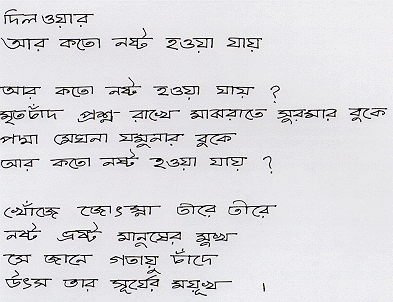 দিলওয়ার
আর কতো নষ্ট হওয়া যায়
আর কতো নষ্ট হওয়া যায় ?
মৃতচাঁদ প্রশ্ন রাখে মাঝরাতে সুরমার বুকে
পদ্মা মেঘনা যমুনার বুকে
আর কতো নষ্ট হওয়া যায় ?
খোঁজে জোৎস্না তীরে তীরে
নষ্ট ভ্রষ্ট মানুষের মুখ
সে জানে গতায়ু চাঁদে
উৎস তার সূর্যের ময়ূখ ।